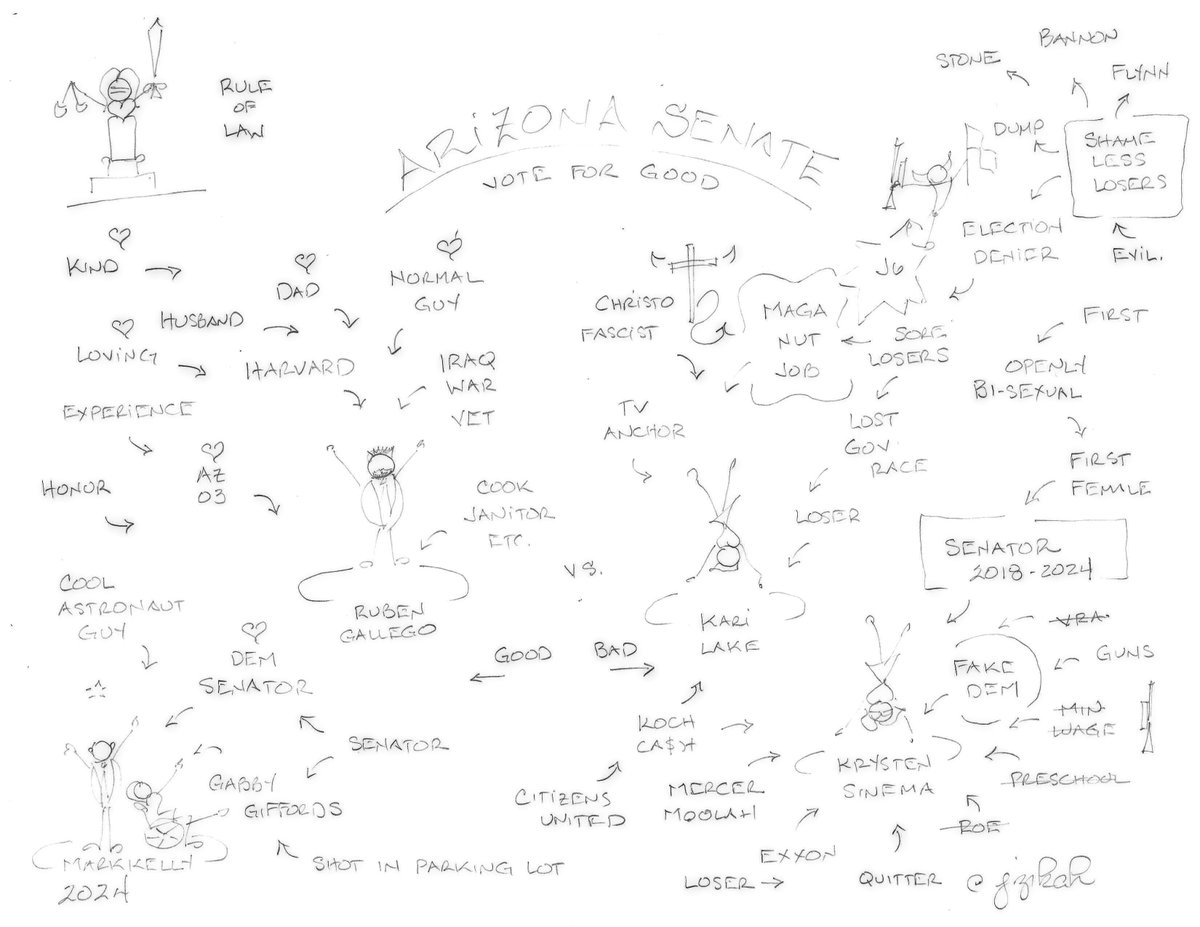 RULE
OF
LAW
ARIZONA SENATE
VOTE FOR GOOD
STONE
BANNON
FLYNN
DUMP
SHAME
LESS
LOSERS
ELECTION
DENIER
EVIL.
KIND
DAD
NORMAL
GUY
HUSBAND
LOVING
HARVARD
IRAQ
WAR
VET
EXPERIENCE
HONOR
AZ
03
COOK
JANITOR
ETC.
RUBEN
GALLEGO
VS.
CHRISTO
FASCIST
MAGA
NUT
JOB
J6
SORE
LOSERS
TV
ANCHOR
LOST
GOV.
RACE
LOSER
KARI
LAKE
FIRST
OPENLY
BI-SEXUAL
FIRST
FEMALE
SENATOR
2018-2024
COOL
ASTRONAUT
GUY
DEM
SENATOR
GOOD
BAD
SENATOR
GABBY
GIFFORDS
MARK KELLY
2024
SHOT IN PARKING LOT
KOCH
CA$H
CITIZENS
UNITED
MERCER
MOOLAH
EXXON
LOSER
QUITTER
KRYSTEN
SINEMA
FAKE
DEM
VRA
GUNS
MIN
WAGE
PRESCHOOL
ROE
© jzikah